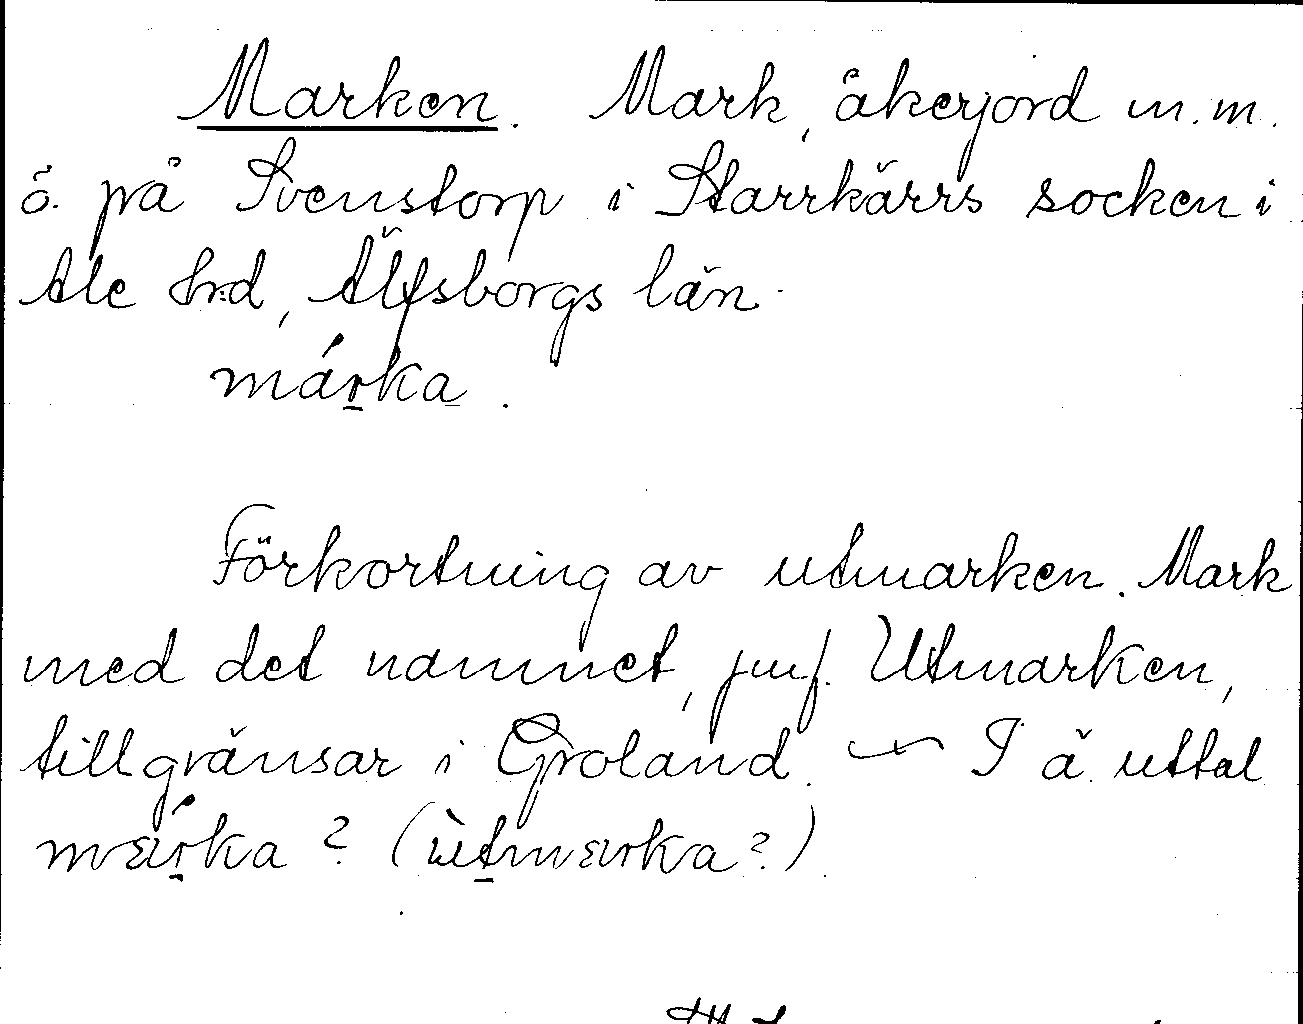 Marken. Mark, åkerjord m.m.
ö. på Svenstorp i Starrkärrs socken i
Ale hrd, Älfsborgs län.
márka.
Förkortning av utmarken. Mark
med det namnet, jmf. Utmarken,
tillgränsar i Groland. — I ä. uttal
marka? (ùtmarka?)